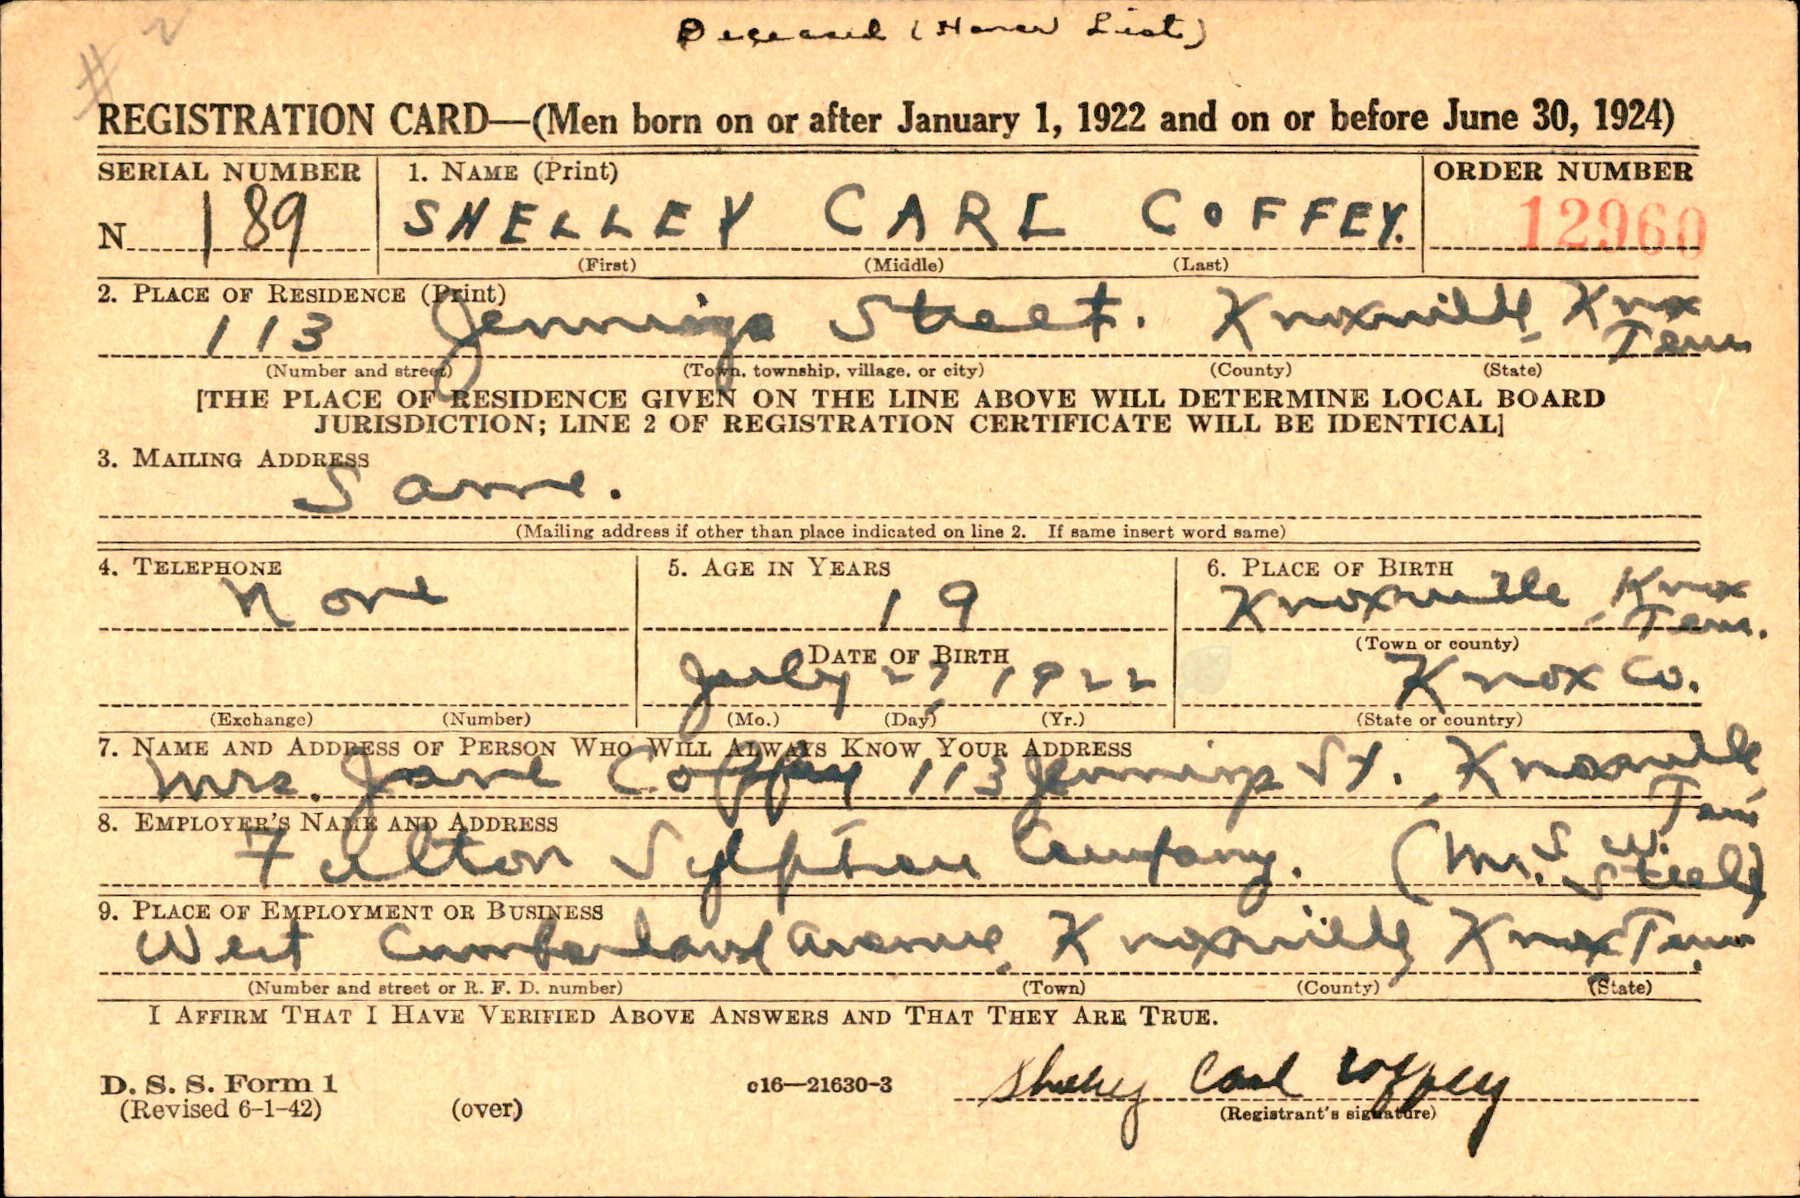 # 2
Deceased (Honor List)
REGISTRATION CARD—(Men born on or after January 1, 1922 and on or before June 30, 1924)
SERIAL NUMBER 1. NAME (Print) ORDER NUMBER
N 189 SHELLEY CARL COFFEY. 12960
(First) (Middle) (Last)
2. PLACE OF RESIDENCE (Print)
113 Jennings Street. Knoxville, Knox Tenn
(Number and street) (Town, township, village, or city) (County) (State)
[THE PLACE OF RESIDENCE GIVEN ON THE LINE ABOVE WILL DETERMINE LOCAL BOARD
JURISDICTION; LINE 2 OF REGISTRATION CERTIFICATE WILL BE IDENTICAL]
3. MAILING ADDRESS
Same.
(Mailing address if other than place indicated on line 2. If same insert word same)
4. TELEPHONE 5. AGE IN YEARS 6. PLACE OF BIRTH
None 19 Knoxville, Knox Tenn.
DATE OF BIRTH (Town or county)
July 27, 1922 Knox Co.
(Exchange) (Number) (Mo.) (Day) (Yr.) (State or country)
7. NAME AND ADDRESS OF PERSON WHO WILL ALWAYS KNOW YOUR ADDRESS
Mrs. Jane Coffey 113 Jennings St., Knoxville Tenn
8. EMPLOYER'S NAME AND ADDRESS
Fulton Sylphon Company. (Mr. S. W. Steele)
9. PLACE OF EMPLOYMENT OR BUSINESS
West Cumberland Avenue, Knoxville, Knox Tenn.
(Number and street or R. F. D. number) (Town) (County) (State)
I AFFIRM THAT I HAVE VERIFIED ABOVE ANSWERS AND THAT THEY ARE TRUE.
D. S. S. Form 1 c16—21630-3 Shelley Carl Coffey
(Revised 6-1-42) (over) (Registrant's signature)